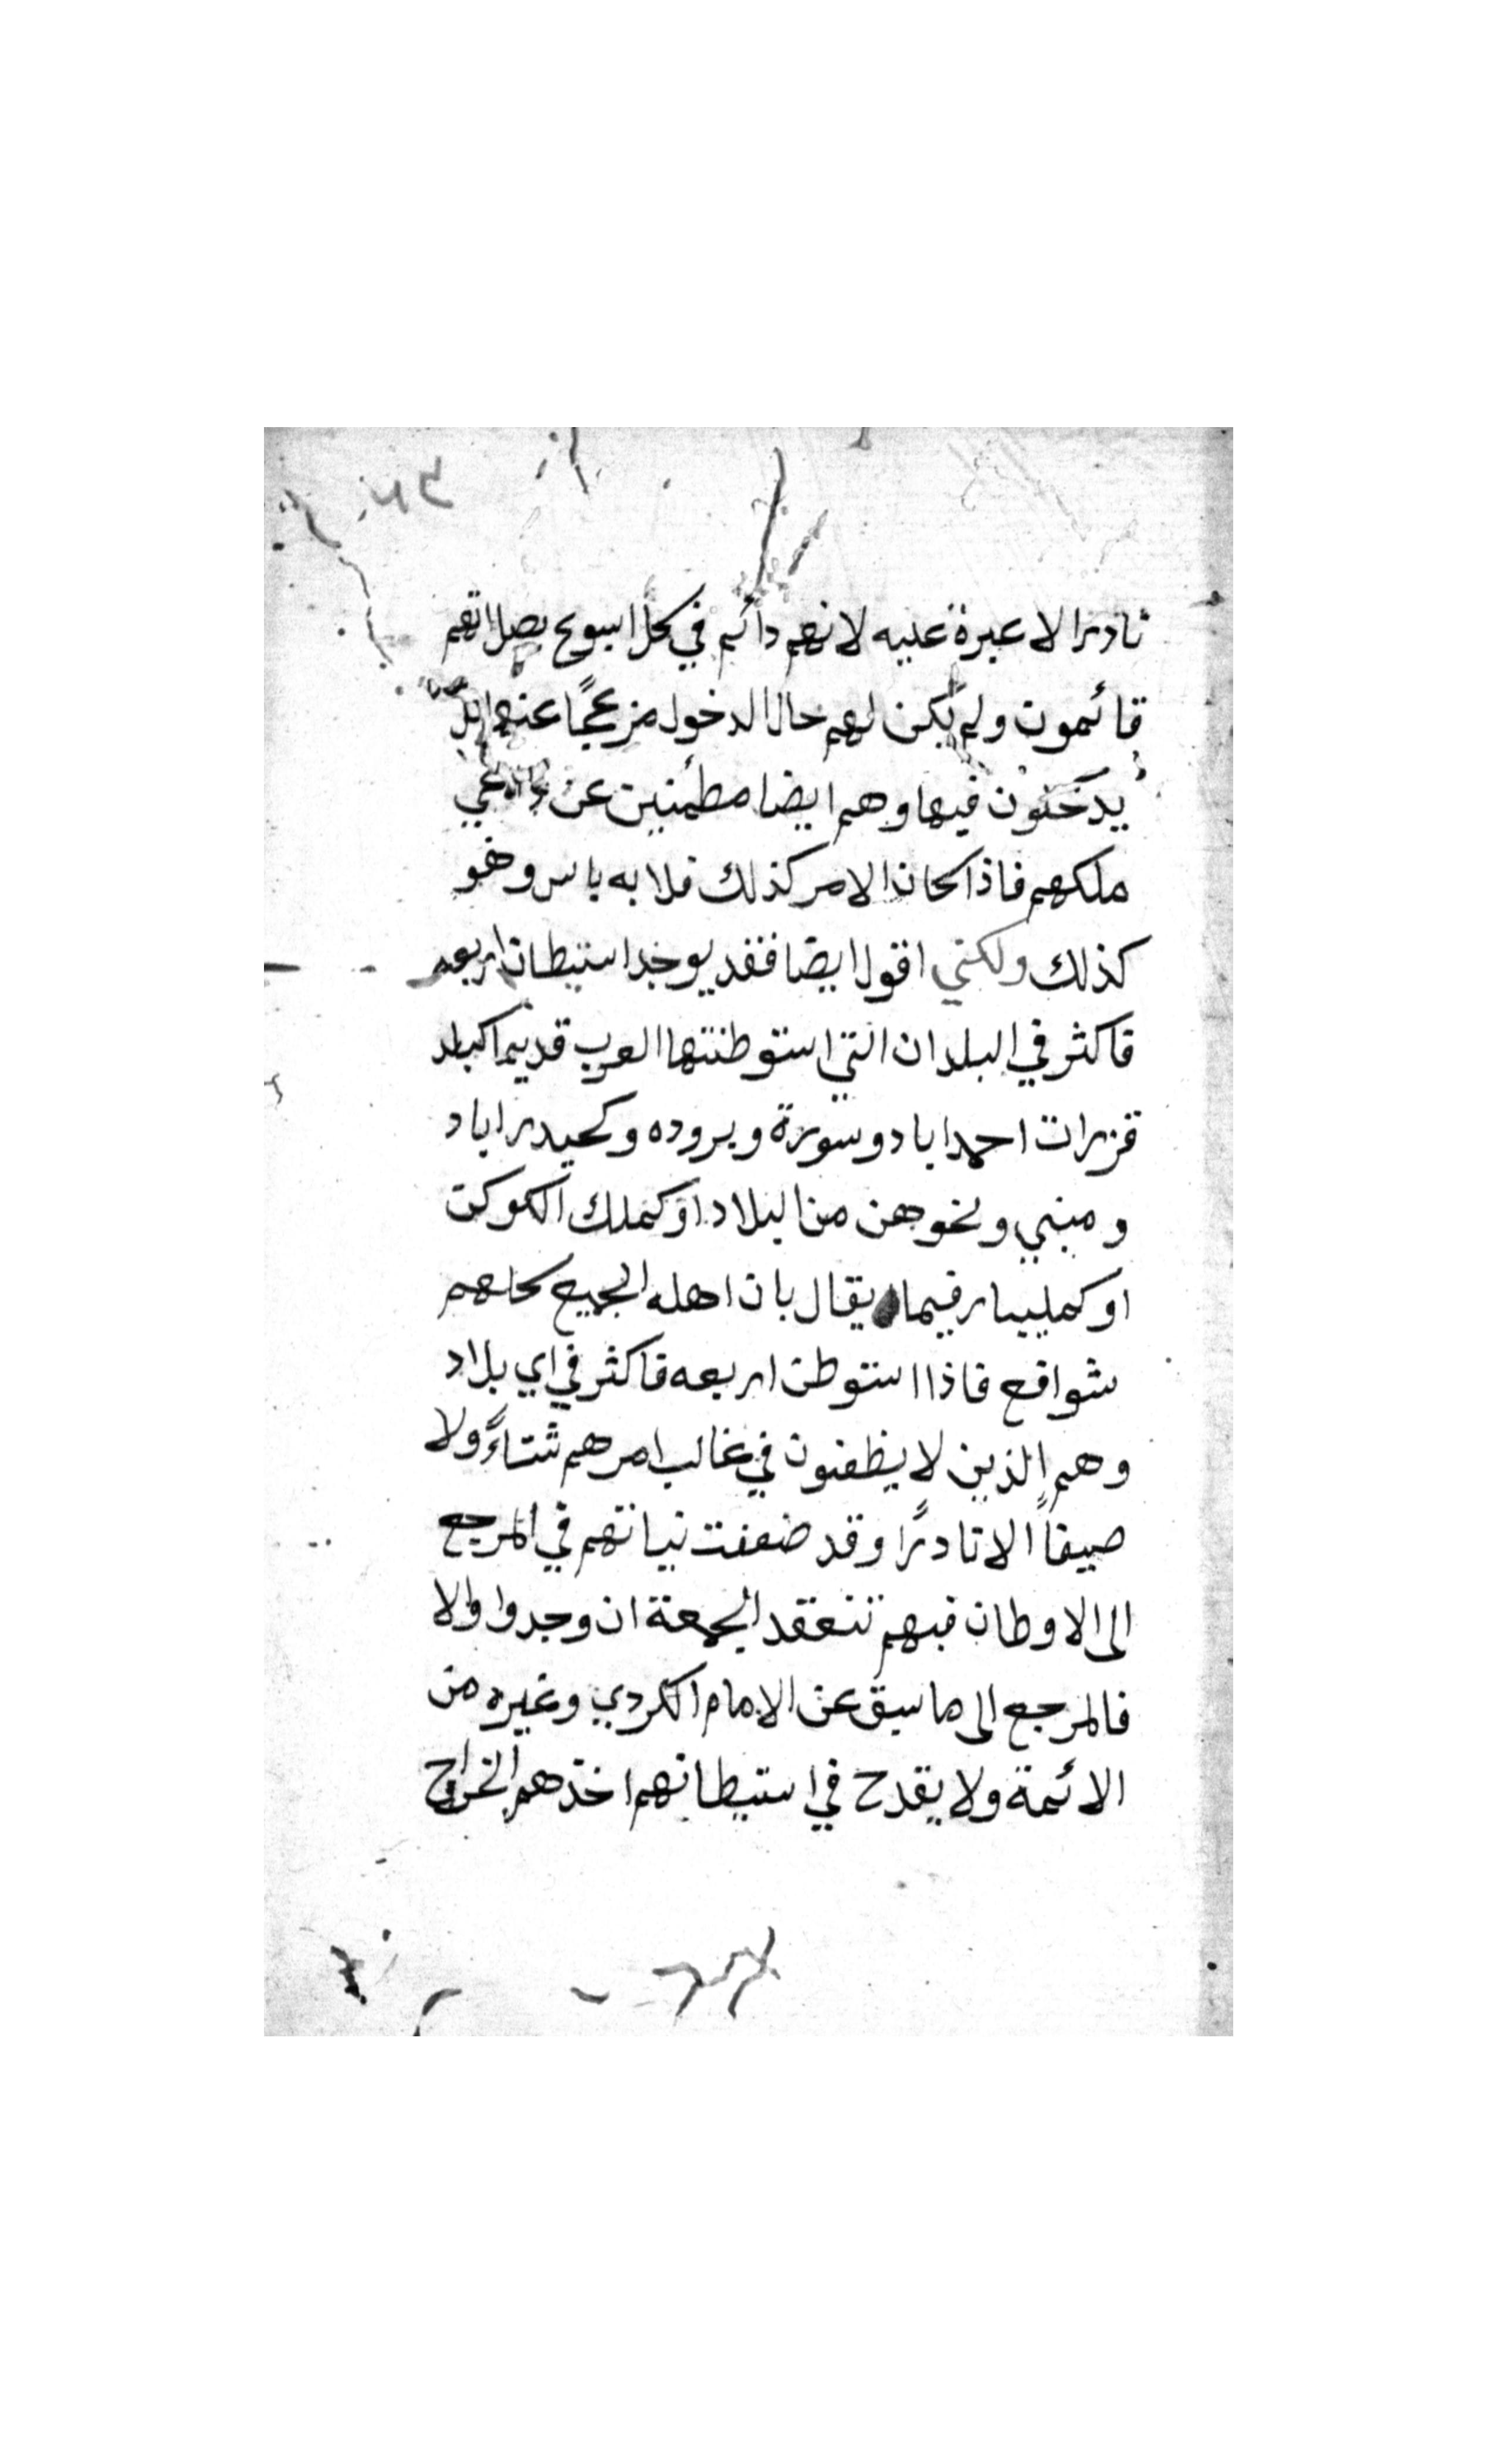 نادرا لا عبرة عليه لانهم دائم في كل اسبوع بصلاتهم
قائمون ولم يكن لهم حال الدخول مزعجًا عنها بل
يدخلون فيها وهم ايضا مطمئنين عن
ملكهم فاذا كان الامر كذلك فلا به باس وهو
كذلك ولكني اقول ايضا فقد يوجد استيطان اربعه
فاكثر في البلدان التي استوطنتها العرب قديما كبلد
قزرات احمداباد وسورة وبروده وكحيدراباد
ومنبي ونحوهن من البلاد او كملك الكوكن
او كمليبار فيما يقال بان اهله الجميع كلهم
شوافع فاذا استوطن اربعه فاكثر في اي بلاد
وهم الذين لا يظعنون في غالب امرهم شتاءً ولا
صيفاً الا نادرًا وقد ضعفت نياتهم في المرجع
الى الاوطان فبهم تنعقد الجمعة ان وجدوا والا
فالمرجع الى ما سبق عن الامام الكردي وغيره من
الائمة ولا يقدح في استيطانهم اخذهم الخراج